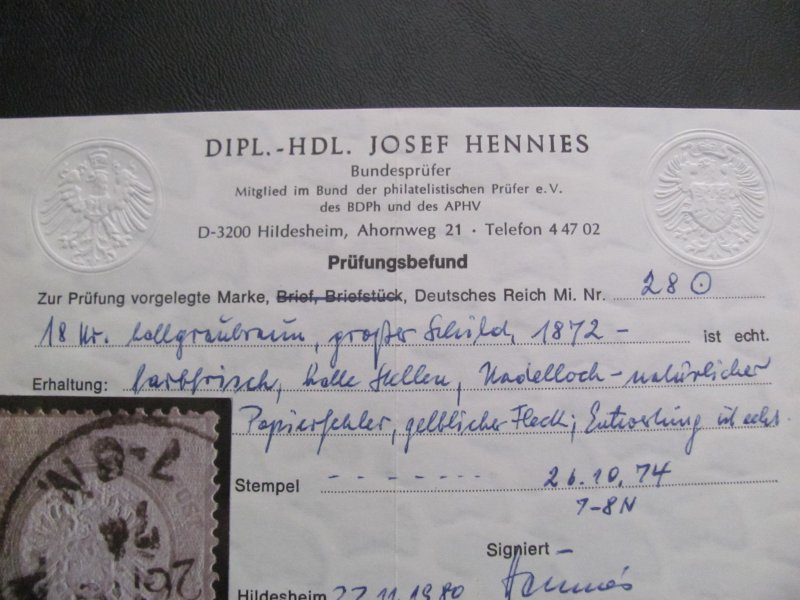 DIPL.-HDL. JOSEF HENNIES
Bundesprüfer
Mitglied im Bund der philatelistischen Prüfer e.V.
des BDPh und des APHV
D-3200 Hildesheim, Ahornweg 21 · Telefon 4 47 02
Prüfungsbefund
Zur Prüfung vorgelegte Marke, Brief, Briefstück, Deutsches Reich Mi. Nr. 28 ⊙
18 Kr. hellgraubraun, großer Schild, 1872 – ist echt.
Erhaltung: farbfrisch, helle Stellen, Nadelloch – natürlicher
Papierfehler, gelblicher Fleck; Entwertung ist echt.
Stempel - - - - - - - 26.10.74
7-8N
Signiert –
Hildesheim 27.11.1980 Hennies
7-8N
74
26